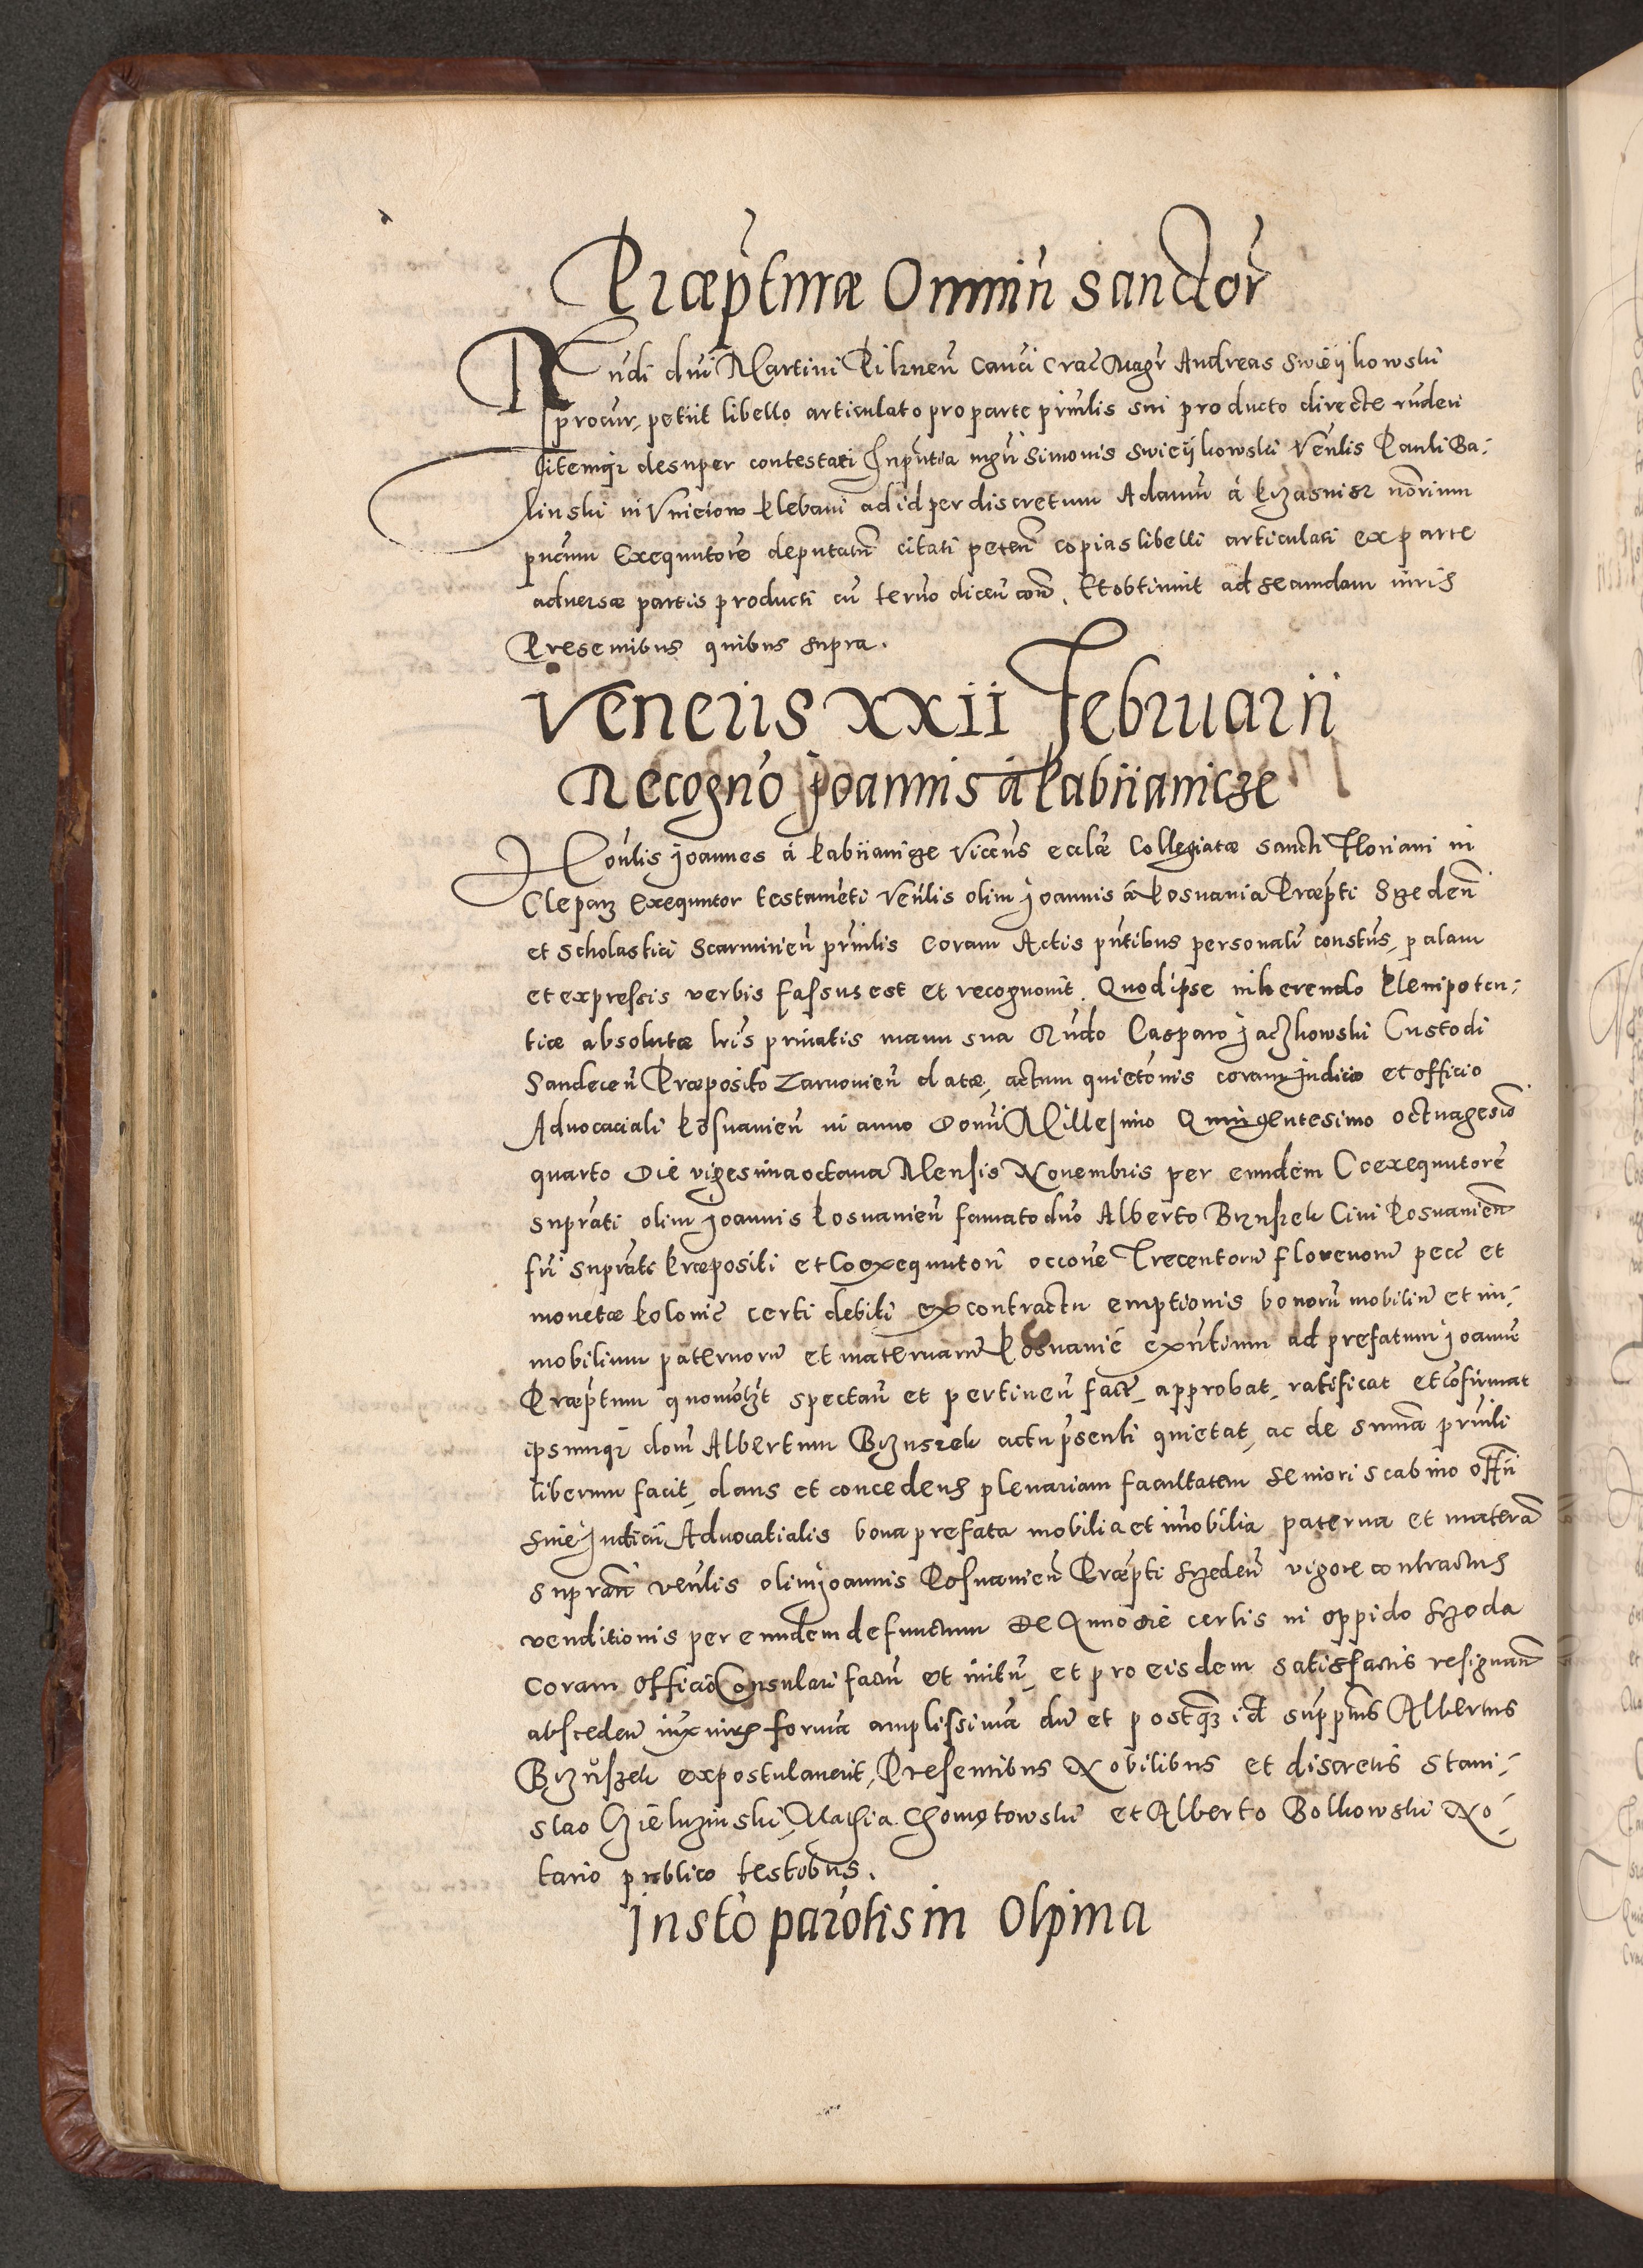 Præpturæ Omniũ sanctor
Rñdi dñi Martini Pilzneñ Canci Crac Magr Andreas Swieijkowski
procur, petiit libello articulato pro parte prinlis sui producto directe rñderi
litemqz desuper contestari In pntia mgri Simonis Swieijkowski Venlis Pauli Ba-
linski in Vnieiow Plebani ad id per discretum Adamũ á Krzasnisz norium
pucum Exequutorẽ deputatũ citati peteñ copias libelli articulati ex parte
adversæ partis producti cũ terno diceñ coñ. Et obtinuit ad scamdam iuris
Presentibus quibus supra.
Veneris XXII Februarii
Recogno Joannis á Pabiianicze
Honlis Joannes á Pabiianicze Viceñs eccliæ Collegiatæ sancti Floriani in
Cleparz Exequutor testamẽti Venlis olim Joannis á Posnania Præpti Szedeñ
et Scholastici Scarmirieñ prinlis coram Actis pntibus personalr constus, palam
et expressis verbis fassus est et recognouit. Quod ipse inhærendo Plenipoten-
tiæ absolutæ lris priuatis manu sua Rndo Casparo Jaczkowski Custodi
Sandeceñ Præposito Zarnovieñ datæ, actum quietonis coram Iudicio et officio
Aduocaciali Posnanieñ in anno Domi Millesimo Quingentesimo octuagesiō
quarto Die vigesima octaua Mensis Nouembris per eundem Coexequutorẽ
suprati olim Joannis Posnanieñ famato dño Alberto Brzuszek Ciui Posnanieñ
fri suprati Præpositi et Coexequutori occone Trecentorũ florenorũ pecc et
monetæ Polonic certi debiti ex contractu emptionis bonorũ mobiliũ et im-
mobilium paternorũ et maternarũ Posnanié exñtium ad prefatum Joannẽ
Præptum quomolzt spectañ et pertineñ factæ, approbat, ratificat et cōfirmat
ipsumqz dom Albertum Brzuszek actu psenti quietat, ac de summa prinli
liberum facit, dans et concedens plenariam facultatem Seniori scabino offii
siue Judicii Aduocatialis bona prefata mobilia et imobilia paterna et materā
supran venlis olim Joannis Posnanieñ Præpti Szedeñ vigore contractus
venditionis per eundem defunctum De Anno die certis in oppido Szoda
coram Officio Consulari factũ et initũ, et pro eisdem satisfactis resignañ
absceden iux iuris formã amplissimã dũ et postqz id supptus Albertus
Brzuszek expostulauerit, Presentibus Nobilibus et discretis Stani-
slao Chieluzinski, Mathia Chomotowski et Alberto Bolkowski No-
tario publico testibus.
Insto parōlis in Olpina